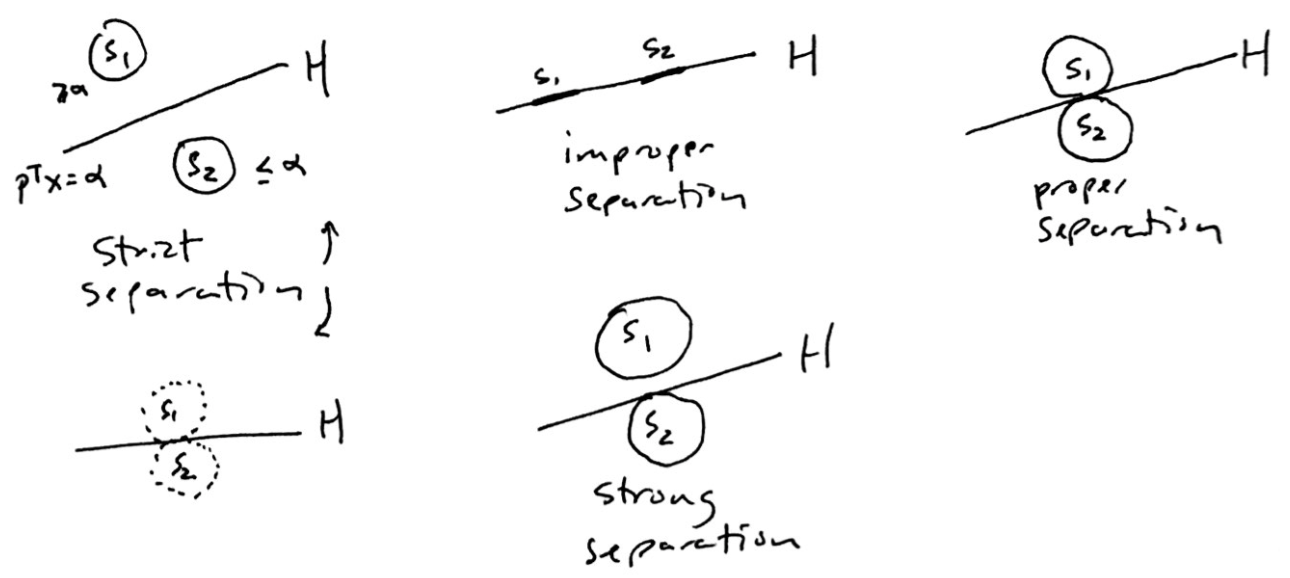 S₁
≥α
H
pᵀx=α
S₂ ≤ α
Strict
separation
S₁
S₂
H
S₁
S₂
H
improper
separation
S₁
S₂
H
proper
separation
S₁
S₂
H
strong
separation